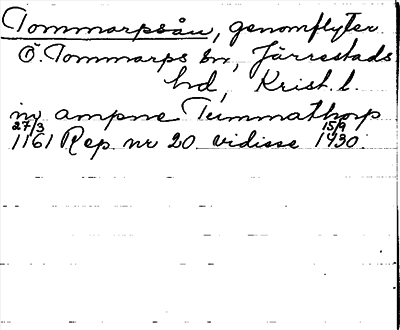 Tommarpsån, genomflyter
Ö. Tommarps sn, Järrestads
hd, Krist. l.
in ampne Tummathorp
27/3 1161 Rep. nr 20 vidisse 15/9 1430.